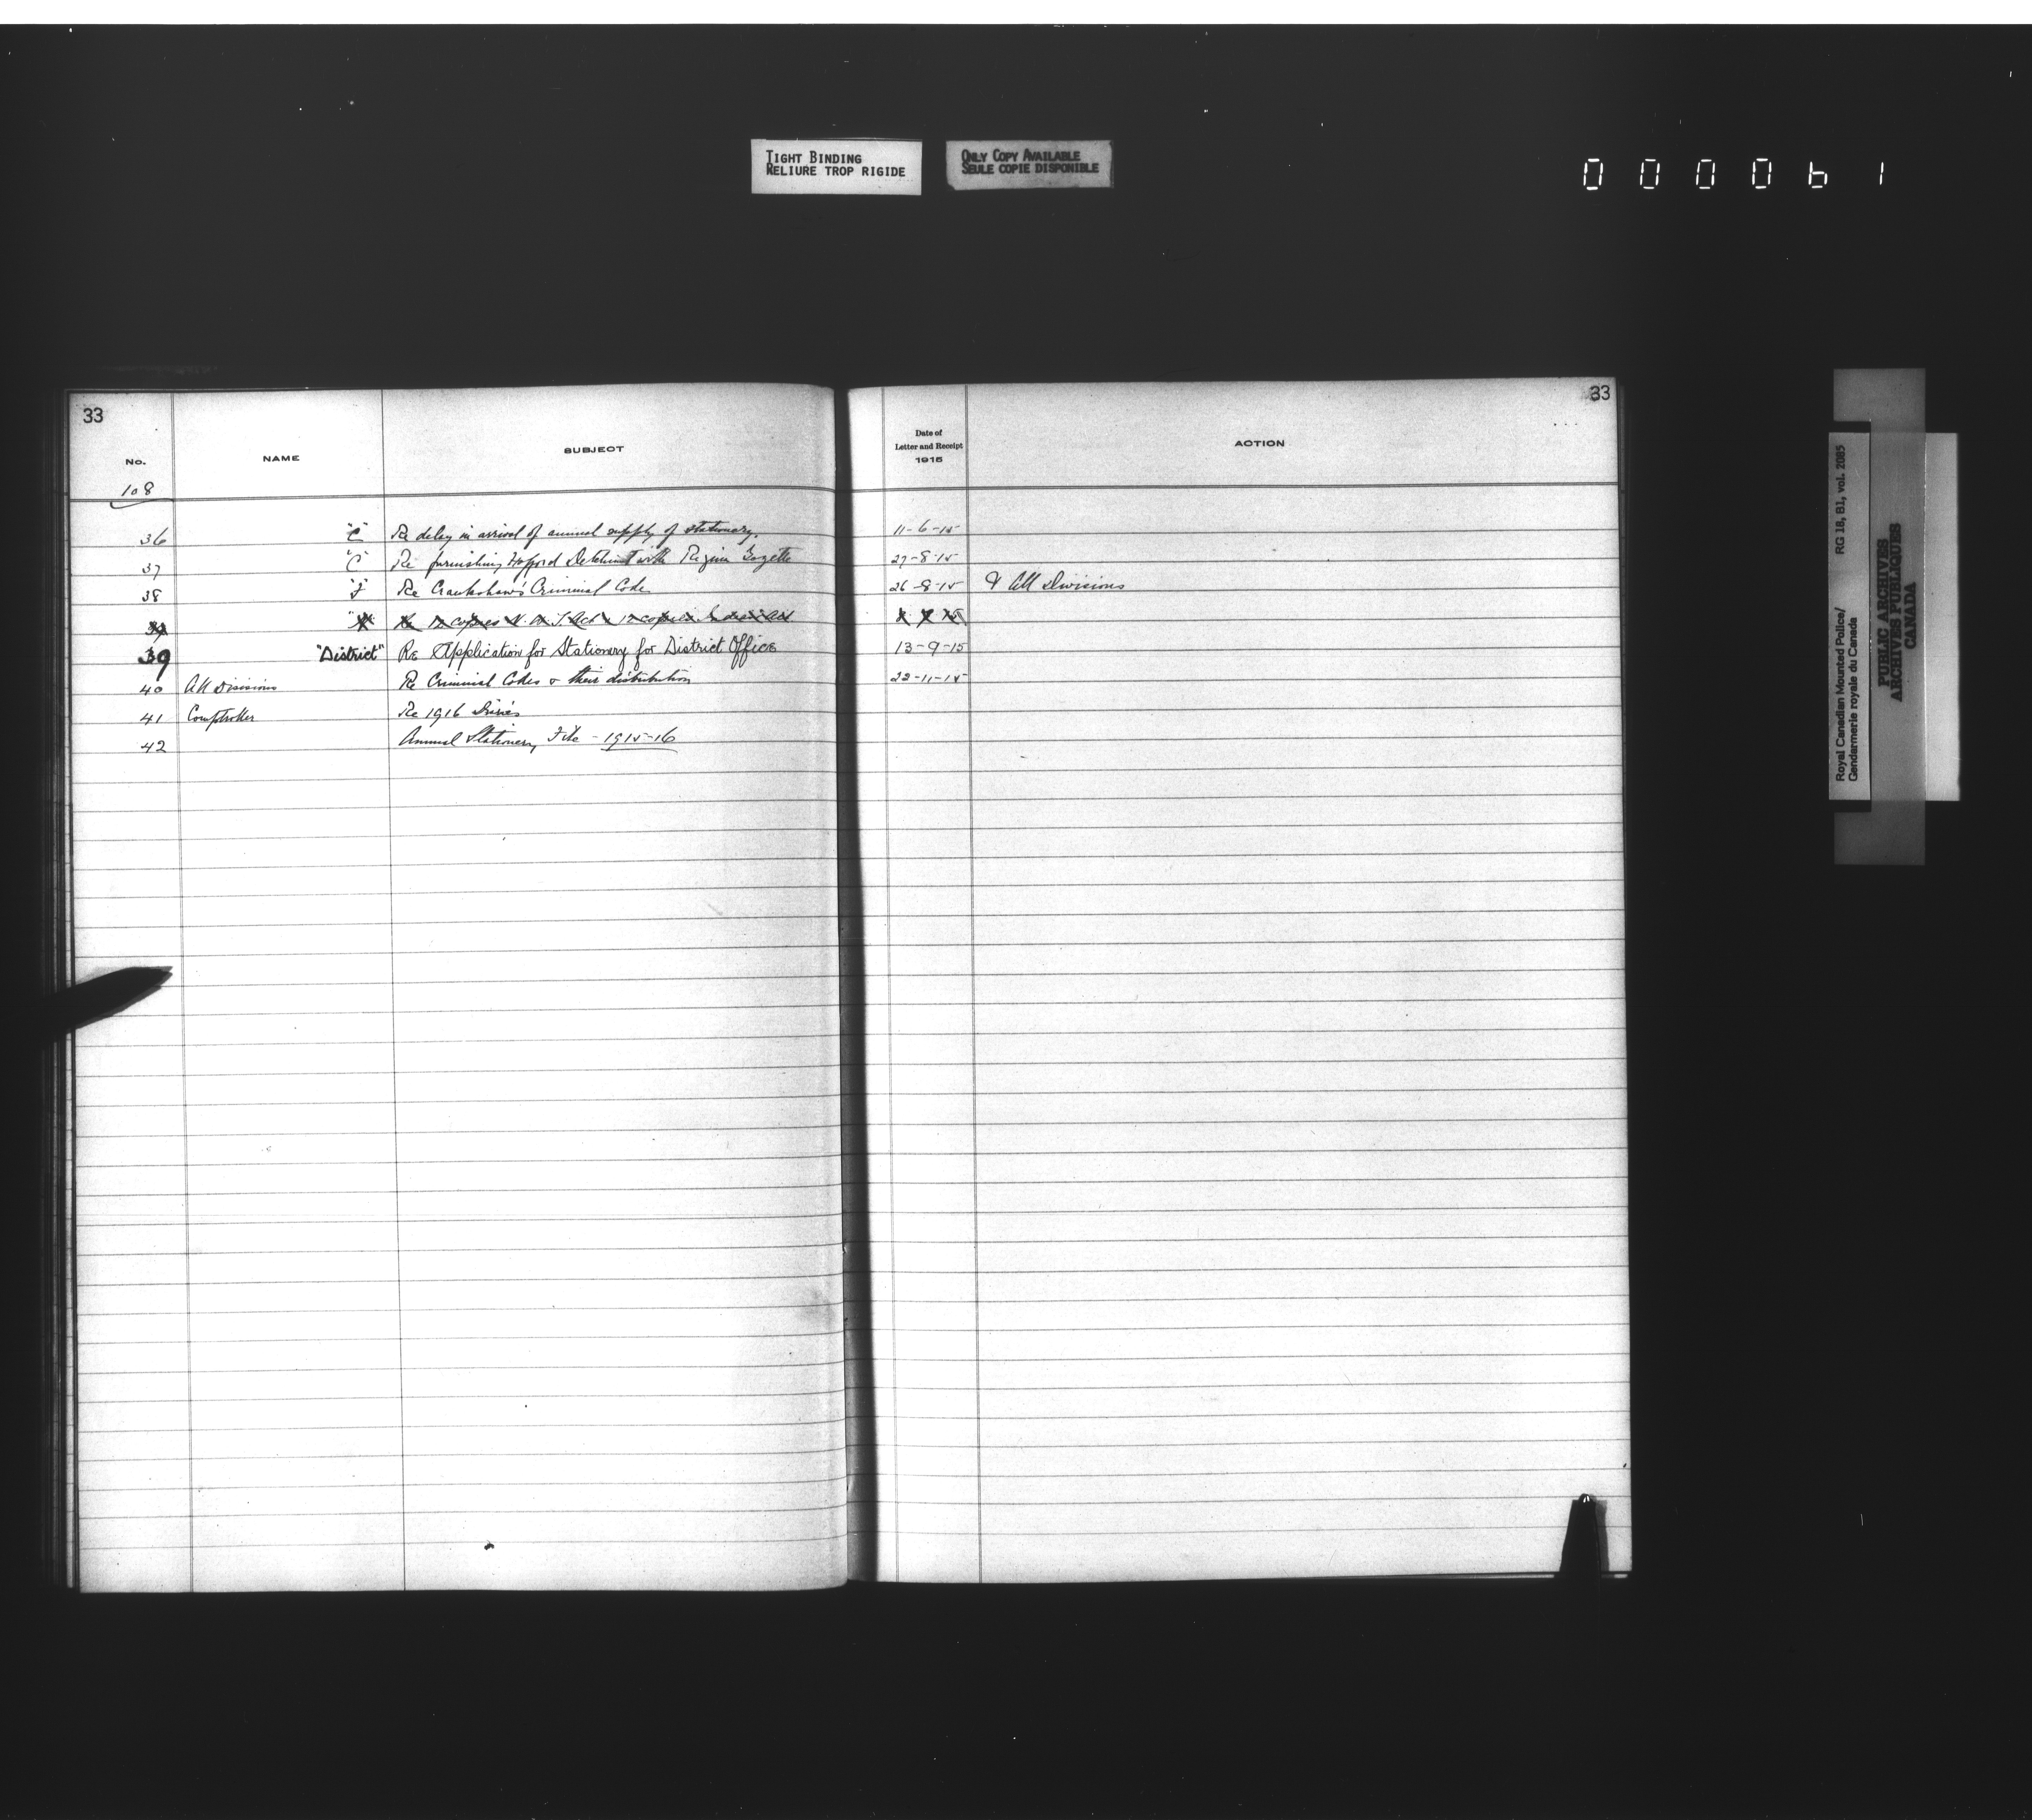 TIGHT BINDING
RELIURE TROP RIGIDE
ONLY COPY AVAILABLE
SEULE COPIE DISPONIBLE
0 0 0 0 6 1
33
No. NAME SUBJECT
108
36 "C" Re delay in arrival of annual supply of stationery.
37 "C" Re furnishing Hafford Detachment with Regina Gazette
38 "J" Re Crankshaw's Criminal Code
39 12 copies N. W. T. Act 12 copies Indian Act
39 "District" Re Application for Stationery for District Office
40 All Divisions Re Criminal Codes & their distribution
41 Comptroller Re 1916 Diaries
42 Annual Stationery File - 1915-16
33
Date of
Letter and Receipt
1915
ACTION
11-6-15
27-8-15
26-8-15 & All Divisions
13-9-15
22-11-15
Royal Canadian Mounted Police/ RG 18, B1, vol. 2085
Gendarmerie royale du Canada
PUBLIC ARCHIVES
ARCHIVES PUBLIQUES
CANADA